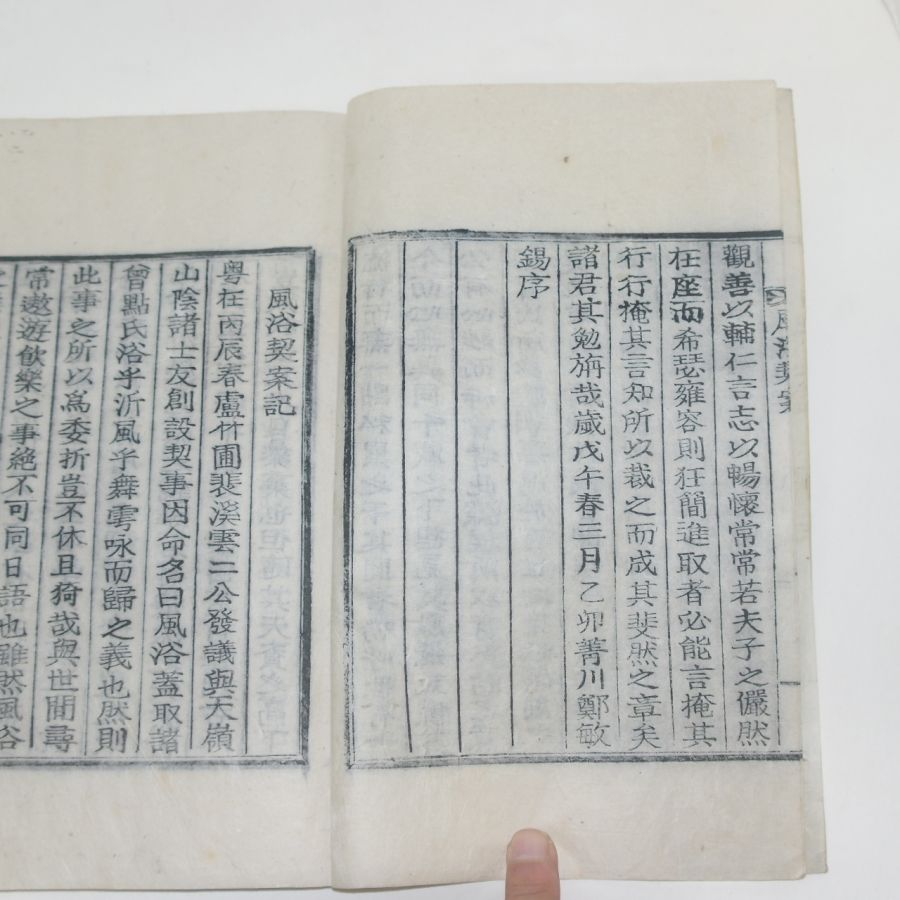 風浴契案
觀善以輔仁言志以暢懷常常若夫子之儼然
在座而希瑟雍容則狂簡進取者必能言掩其
行行掩其言知所以裁之而成其斐然之章矣
諸君其勉旃哉歲戊午春三月乙卯菁川鄭敏
錫序
風浴契案記
粤在丙辰春盧竹圃裴溪雲二公發議與天嶺
山陰諸士友創設契事因命名曰風浴蓋取諸
曾點氏浴乎沂風乎舞雩咏而歸之義也然則
此事之所以爲委折豈不休且猗哉與世間尋
常遨遊飲樂之事絶不可同日語也雖然風浴